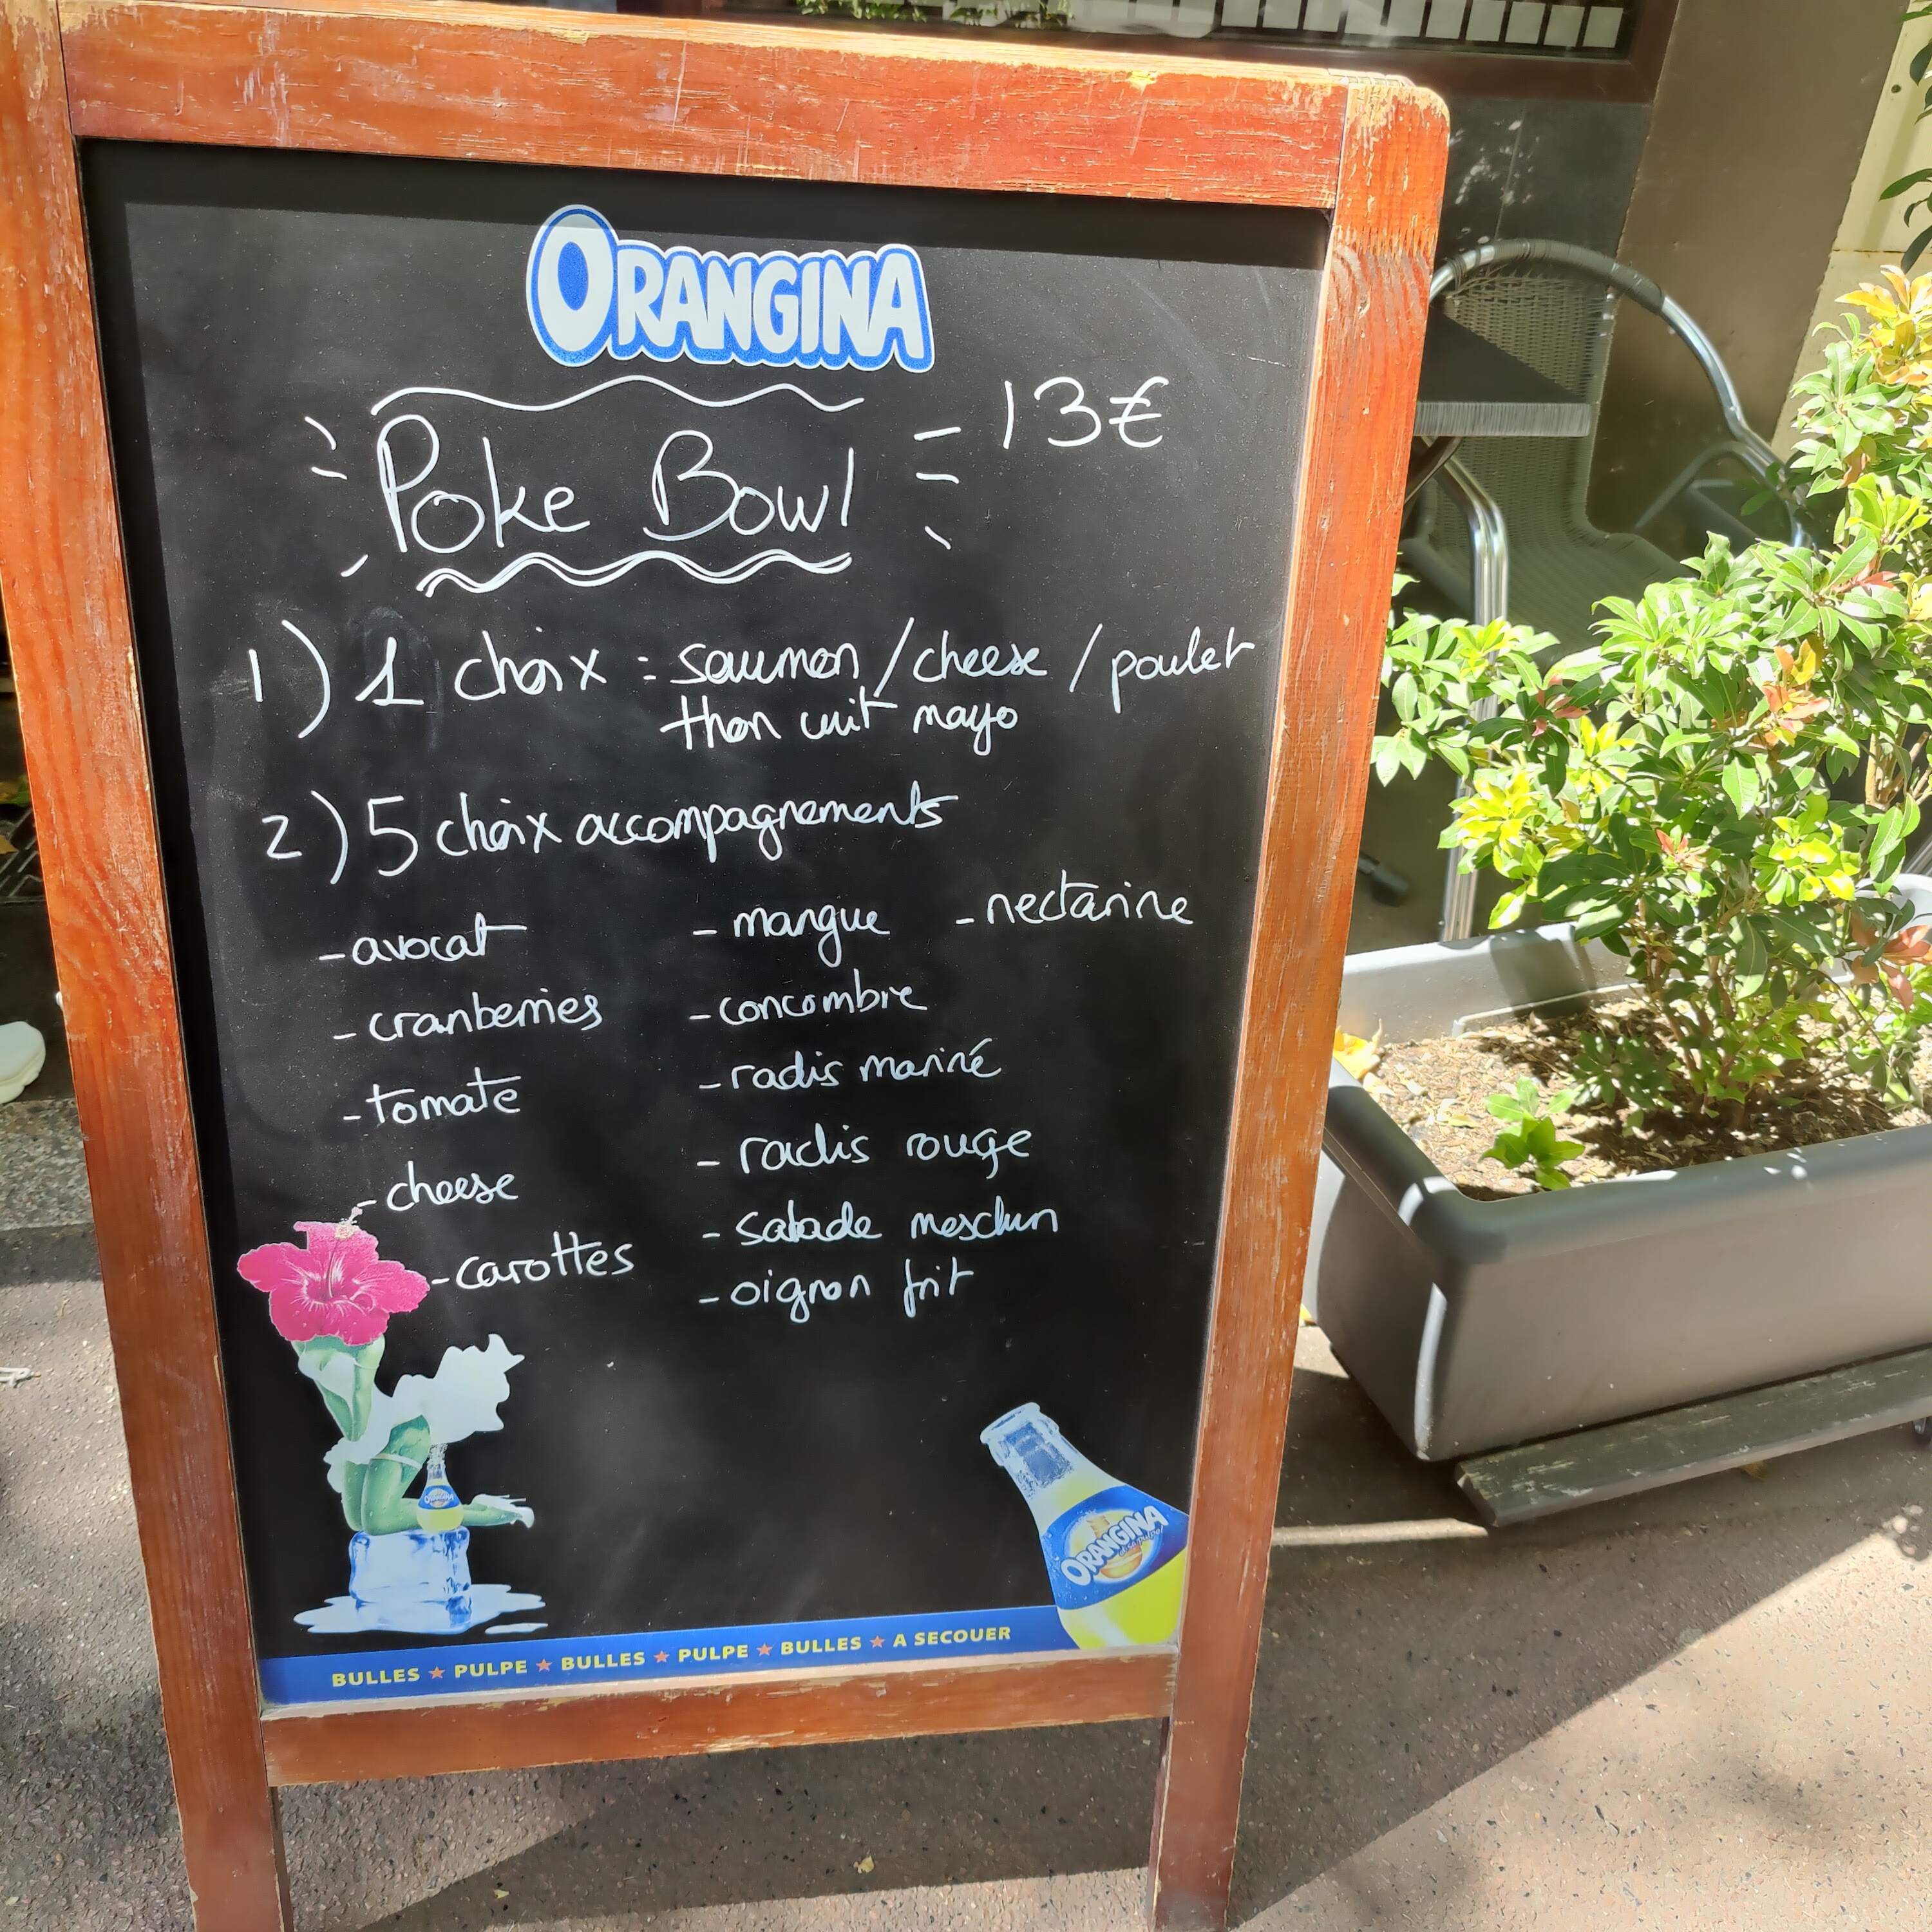 ORANGINA
Poke Bowl 13€
1) 1 choix : saumon / cheese / poulet
thon cuit mayo
2) 5 choix accompagnements
- avocat
- cranberries
- tomate
- cheese
- carottes
- mangue
- concombre
- radis mariné
- radis rouge
- salade mesclun
- oignon frit
- nectarine
ORANGINA
ORANGINA
BULLES ★ PULPE ★ BULLES ★ PULPE ★ BULLES ★ A SECOUER